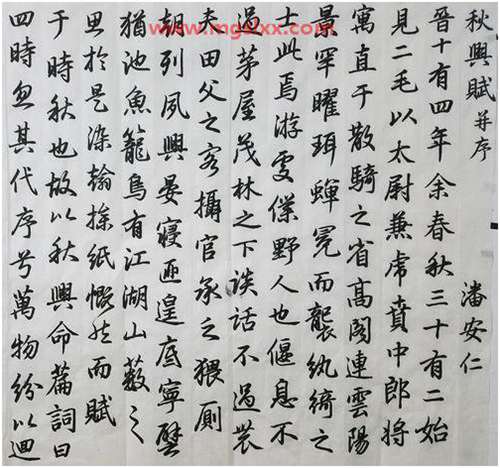 秋興賦 并序 潘安仁
晉十有四年余春秋三十有二始
見二毛以太尉兼虎賁中郎將
寓直于散騎之省高閣連雲陽
景罕曜珥蟬冕而襲紈綺之
士此焉游處僕野人也偃息不
過茅屋茂林之下談話不過農
夫田父之客攝官承乏猥廁
朝列夙興晏寢匪遑底寧譬
猶池魚籠鳥有江湖山藪之
思於是染翰操紙慨然而賦
于時秋也故以秋興命篇詞曰
四時忽其代序兮萬物紛以迴